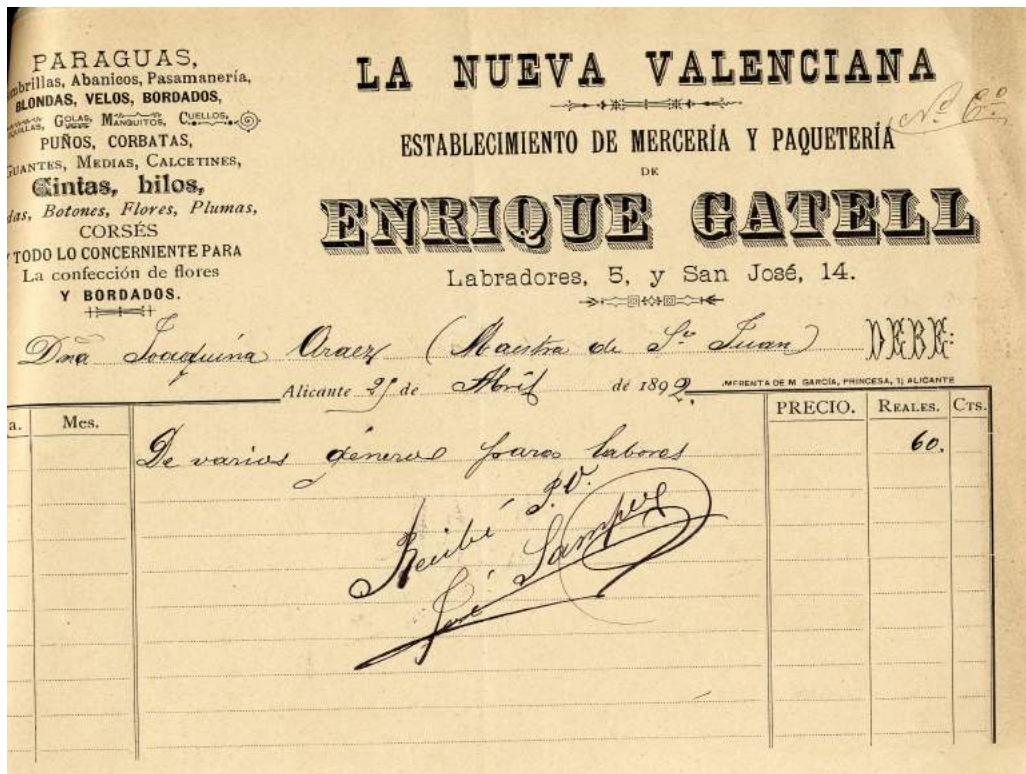 PARAGUAS,
mbrillas, Abanicos, Pasamanería,
BLONDAS, VELOS, BORDADOS,
GOLAS, MANGUITOS, CUELLOS,
PUÑOS, CORBATAS,
GUANTES, MEDIAS, CALCETINES,
Cintas, hilos,
das, Botones, Flores, Plumas,
CORSÉS
Y TODO LO CONCERNIENTE PARA
La confección de flores
Y BORDADOS.
LA NUEVA VALENCIANA
Nº 6º
ESTABLECIMIENTO DE MERCERÍA Y PAQUETERÍA
DE
ENRIQUE GATELL
Labradores, 5, y San José, 14.
Dña Joaquina Araez (Maestra de Sn Juan) DEBE:
Alicante 25 de Abril de 1892
IMPRENTA DE M GARCÍA, PRINCESA, 1; ALICANTE
a. Mes. PRECIO. REALES. CTS.
De varios géneros para labores 60.
Recibí P.O.
José Samper